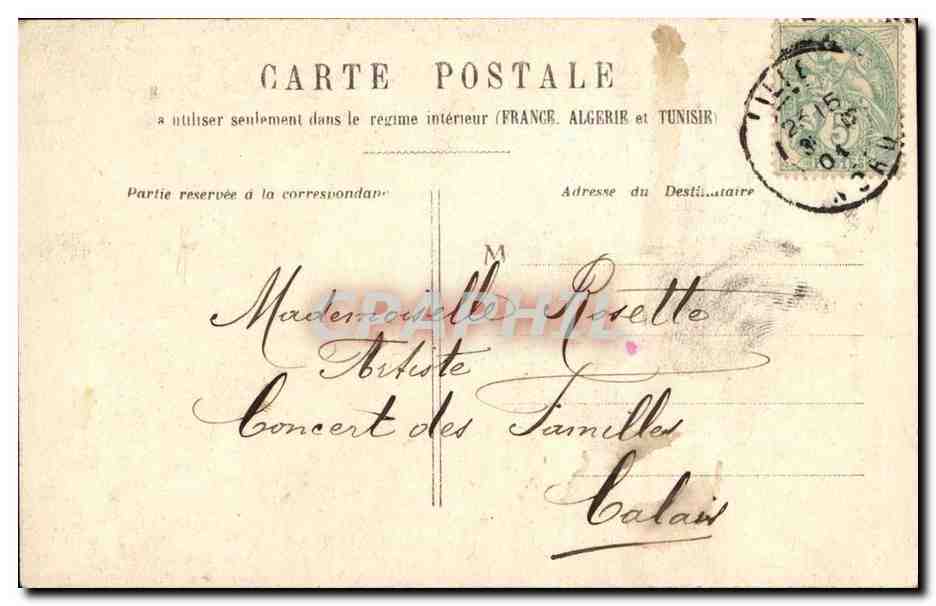 CARTE POSTALE
a utiliser seulement dans le régime intérieur (FRANCE, ALGERIE et TUNISIE)
Partie reservée à la correspondanc
Adresse du Destinataire
M
Mademoiselle Rosette
Artiste
Concert des Familles
Calais
CPAPHIL
LILLE
5